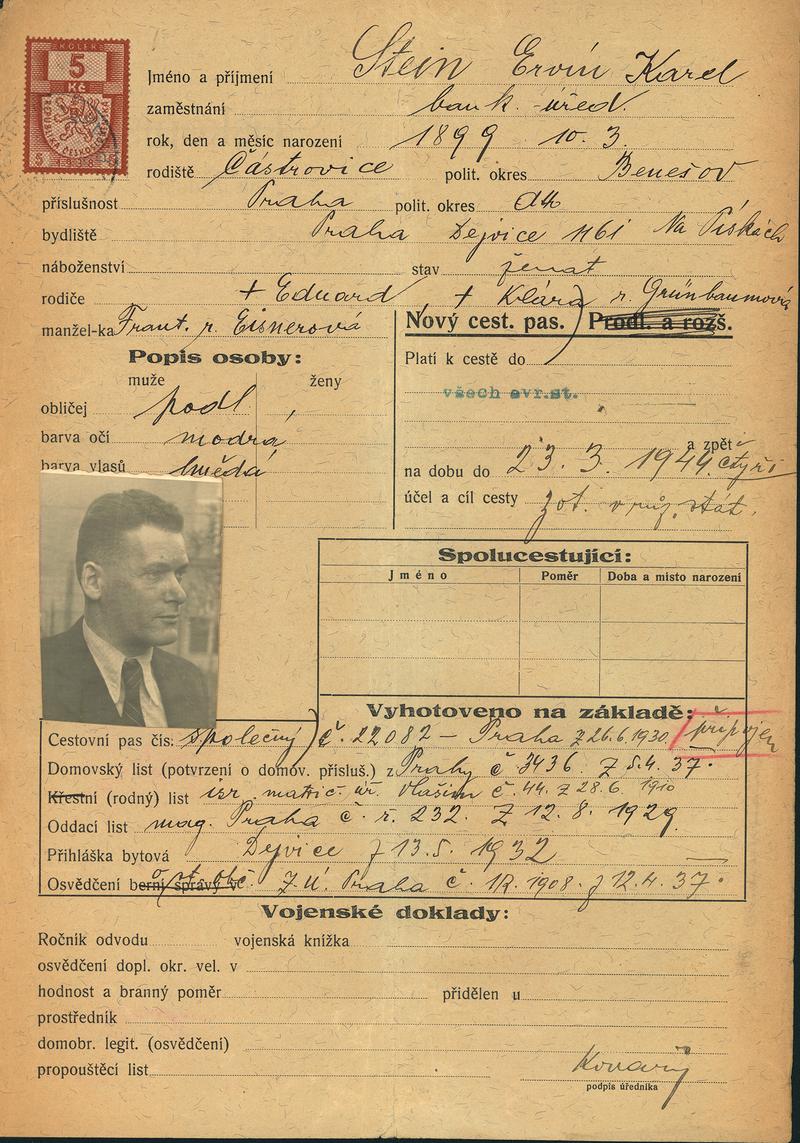 KOLEK
5
Kč
REPUBLIKA ČESKOSLOVENSKÁ
Jméno a příjmení Stein Ervín Karel
zaměstnání bank. úřed.
rok, den a měsíc narození 1899 10.3.
rodiště Částrovice polit. okres Benešov
příslušnost Praha polit. okres dtt
bydliště Praha Dejvice 1161 Na Pískách
náboženství stav ženat
rodiče + Eduard, + Klára r. Grünbaumová
manžel-ka Frant. r. Eisnerová
Nový cest. pas.) Prodl. a rozš.
Popis osoby:
muže ženy
Platí k cestě do
všech evr.st.
obličej podl ,
barva očí modrá
a zpět
barva vlasů hnědá
na dobu do 23. 3. 1944. čtyři
účel a cíl cesty zot. v růz. stát.
Spolucestující:
Jméno Poměr Doba a místo narození
Vyhotoveno na základě:
Cestovní pas čís. společný) č. 22082 – Praha z 26.6.1930 připojen
Domovský list (potvrzení o domov. přísluš.) z Prahy č 3436 z 5.4. 37.
Křestní (rodný) list izr. matric. úř. Vlašim č. 44. z 28.6. 1910
Oddací list mag. Praha č. ř. 232. Z 12. 8. 1929
Přihláška bytová Dejvice z 13.5. 1932
Osvědčení berní správy v Z.Ú. Praha č. 1908. z 12.4. 37.
Vojenské doklady:
Ročník odvodu vojenská knížka
osvědčení dopl. okr. vel. v
hodnost a branný poměr přidělen u
prostředník
domobr. legit. (osvědčení)
propouštěcí list
podpis úředníka